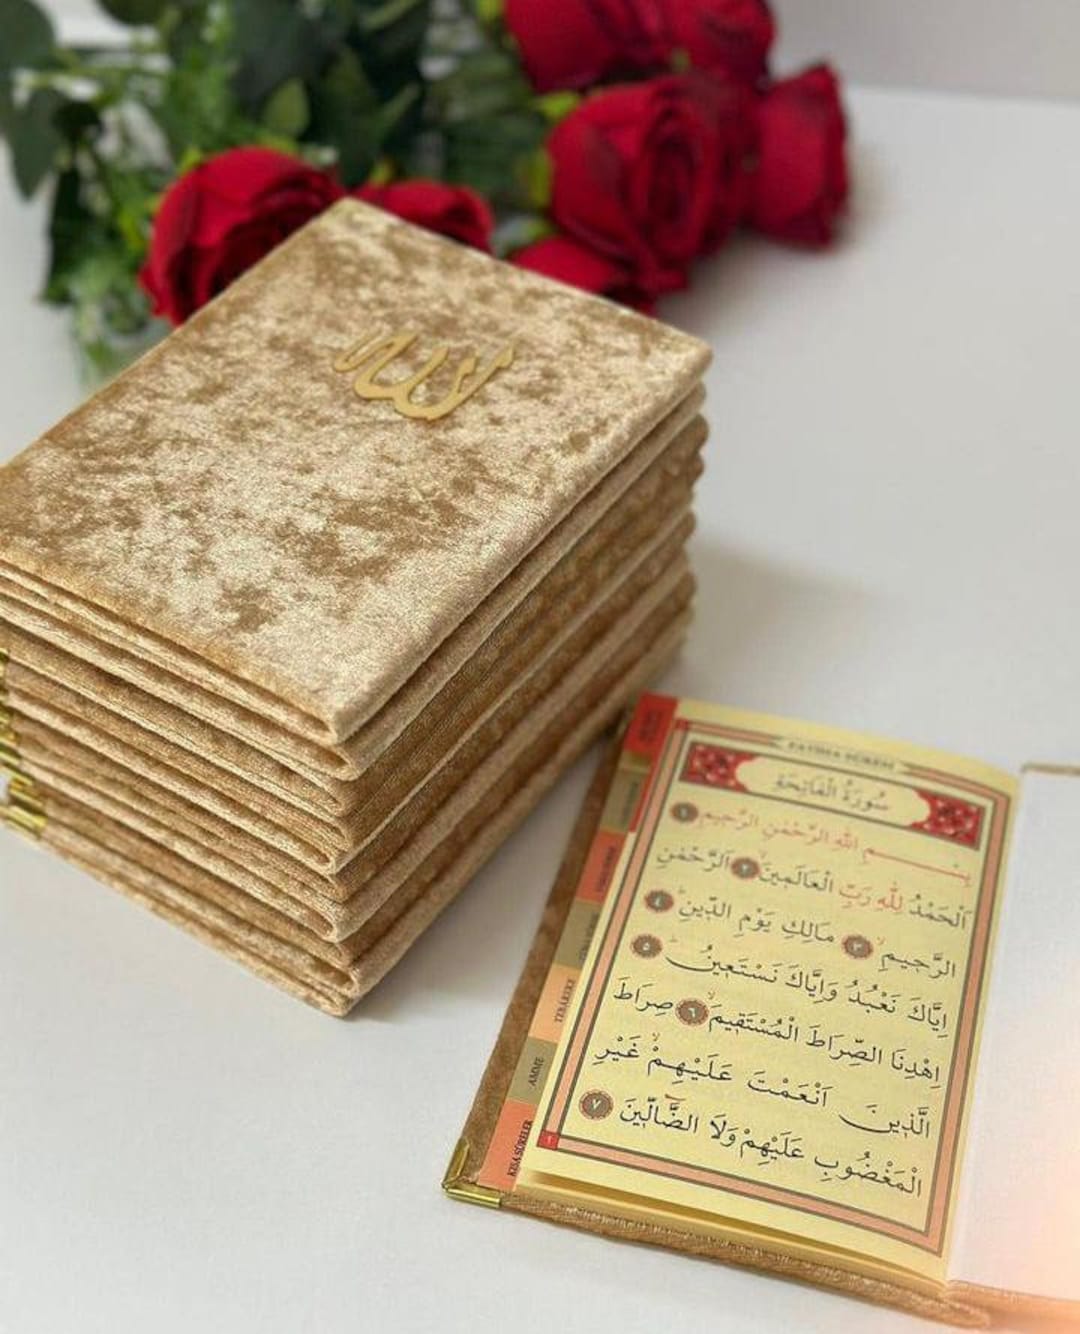 الله
FATİHA SURESİ
سُورَةُ الْفَاتِحَةِ
بِسْــــــــمِ اللّٰهِ الرَّحْمٰنِ الرَّحٖيمِ ١
اَلْحَمْدُ لِلّٰهِ رَبِّ الْعَالَمٖينَۙ ٢ اَلرَّحْمٰنِ
الرَّحٖيمِۙ ٣ مَالِكِ يَوْمِ الدّٖينِؕ ٤
اِيَّاكَ نَعْبُدُ وَاِيَّاكَ نَسْتَعٖينُؕ ٥
اِهْدِنَا الصِّرَاطَ الْمُسْتَقٖيمَۙ ٦ صِرَاطَ
الَّذٖينَ اَنْعَمْتَ عَلَيْهِمْۙ غَيْرِ
الْمَغْضُوبِ عَلَيْهِمْ وَلَا الضَّٓالّٖينَ ٧
١
TEBAREKE
AMME
KISA SURELER